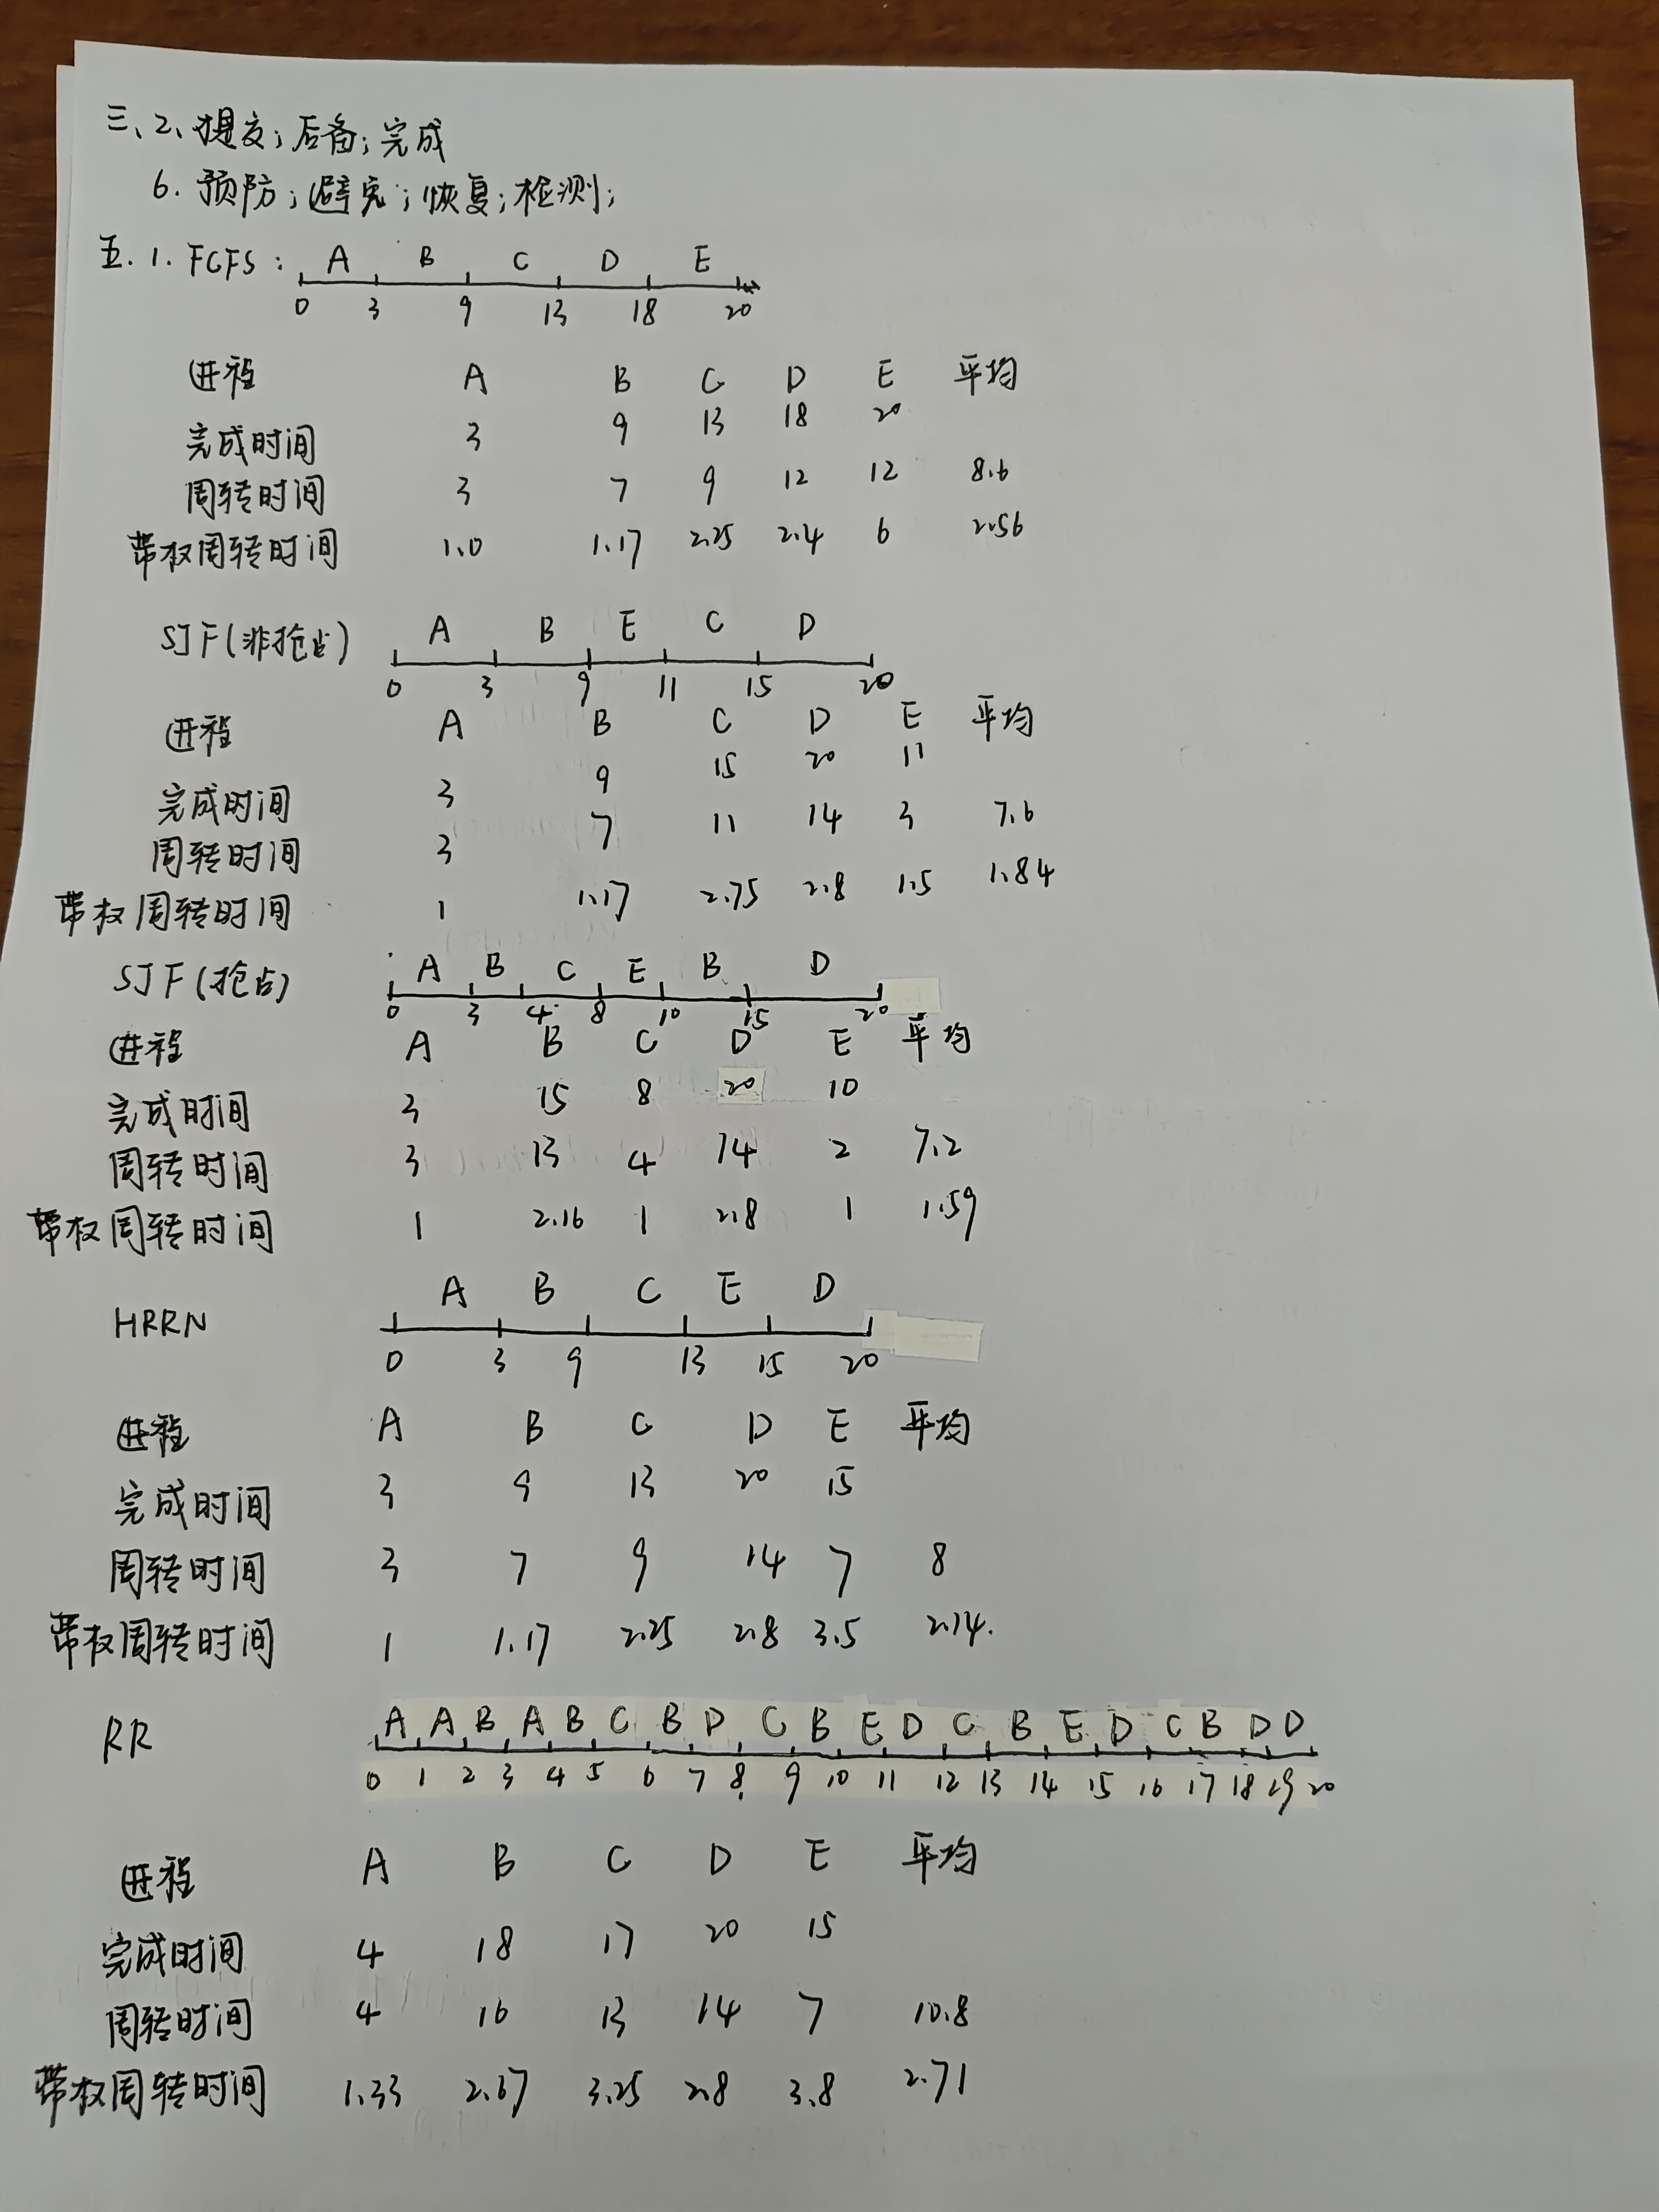 三、2、提交；后备；完成
6. 预防；避免；恢复；检测；
五.1. FCFS: A B C D E
0 3 9 13 18 20
进程 A B C D E 平均
完成时间 3 9 13 18 20
周转时间 3 7 9 12 12 8.6
带权周转时间 1.0 1.17 2.25 2.4 6 2.56
SJF(非抢占) A B E C D
0 3 9 11 15 20
进程 A B C D E 平均
完成时间 3 9 15 20 11
周转时间 3 7 11 14 3 7.6
带权周转时间 1 1.17 2.75 2.8 1.5 1.84
SJF(抢占) A B C E B D
0 3 4 8 10 15 20
进程 A B C D E 平均
完成时间 3 15 8 20 10
周转时间 3 13 4 14 2 7.2
带权周转时间 1 2.16 1 2.8 1 1.59
HRRN A B C E D
0 3 9 13 15 20
进程 A B C D E 平均
完成时间 3 9 13 20 15
周转时间 3 7 9 14 7 8
带权周转时间 1 1.17 2.25 2.8 3.5 2.14.
RR A A B A B C B D C B E D C B E D C B D D
0 1 2 3 4 5 6 7 8 9 10 11 12 13 14 15 16 17 18 19 20
进程 A B C D E 平均
完成时间 4 18 17 20 15
周转时间 4 16 13 14 7 10.8
带权周转时间 1.33 2.67 3.25 2.8 3.8 2.71